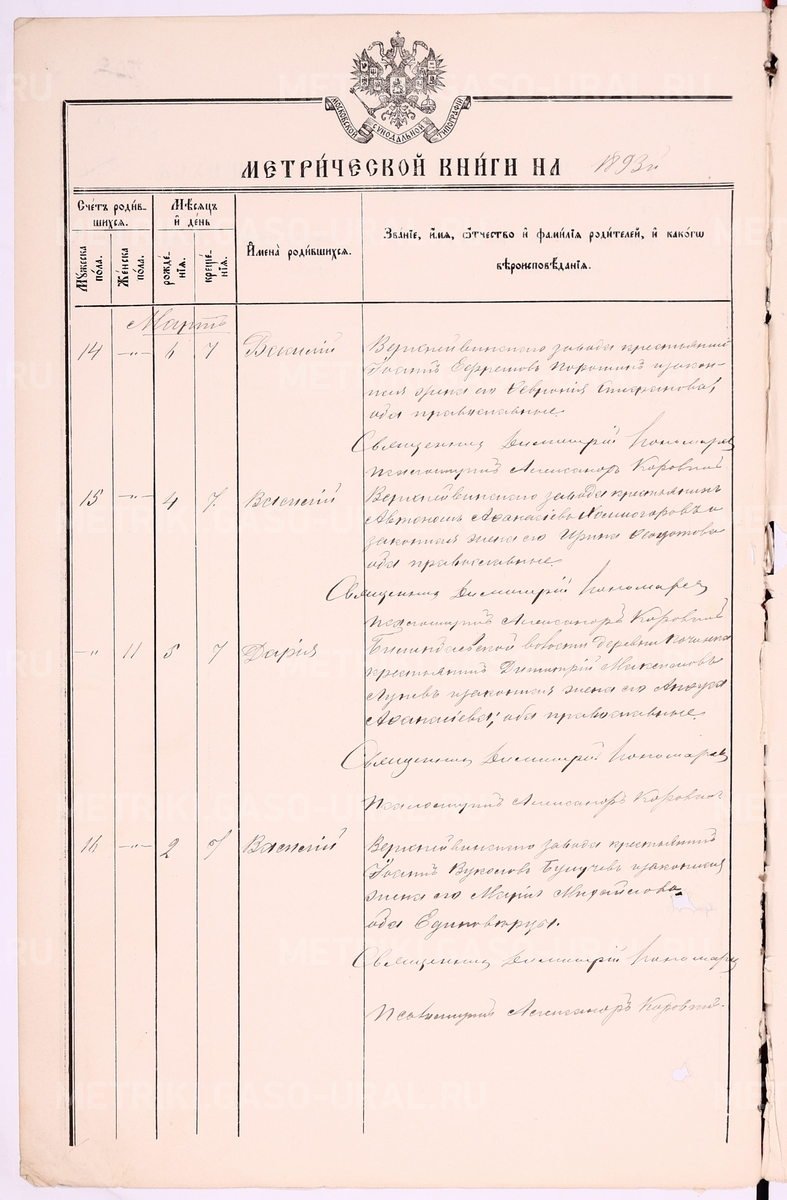 МОСКОВСКОЙ СѴНОДАЛЬНОЙ ТИПОГРАФІИ
МЕТРИ́ЧЕСКОЙ КНИ́ГИ НА 1893й
Счетъ роди́вшихся.
Мѣсяцъ и҆ де́нь
И҆мена̀ роди́вшихся.
Зва́нїе, и҆́мѧ, ѻ҆́тчество и҆ фами́лїѧ роди́телей, и҆ како́гѡ вѣроисповѣ́данїѧ.
Мꙋ́жеска по́ла.
Же́нска по́ла.
рожде́нїѧ.
креще́нїѧ.
Мартъ
14 -"- 6 7 Василій
Верхнейвинскаго завода крестьянинъ
Іоаннъ Ефремовъ и закон-
ная жена его Февронія Стефанова,
оба православные.
Священникъ Димитрій Пономаревъ
Псаломщикъ Александръ Коровинъ
15 -"- 4 7. Василій
Верхнейвинскаго завода крестьянинъ
Автономъ Аѳанасіевъ и
законная жена его Ирина
оба православные.
Священникъ Димитрій Пономаревъ
Псаломщикъ Александръ Коровинъ
-"- 11 5 7 Дарія
волости деревни
крестьянинъ Димитрій
и законная жена его
Аѳанасіева, оба православные.
Священникъ Димитрій Пономаревъ
Псаломщикъ Александръ Коровинъ
16 -"- 2 7 Василій
Верхнейвинскаго завода крестьянинъ
Іоаннъ Вуколовъ и законная
жена его Марія Михайлова
оба Единовѣрцы.
Священникъ Димитрій Пономаревъ
Псаломщикъ Александръ Коровинъ.
METRIKI.GASO-URAL.RU